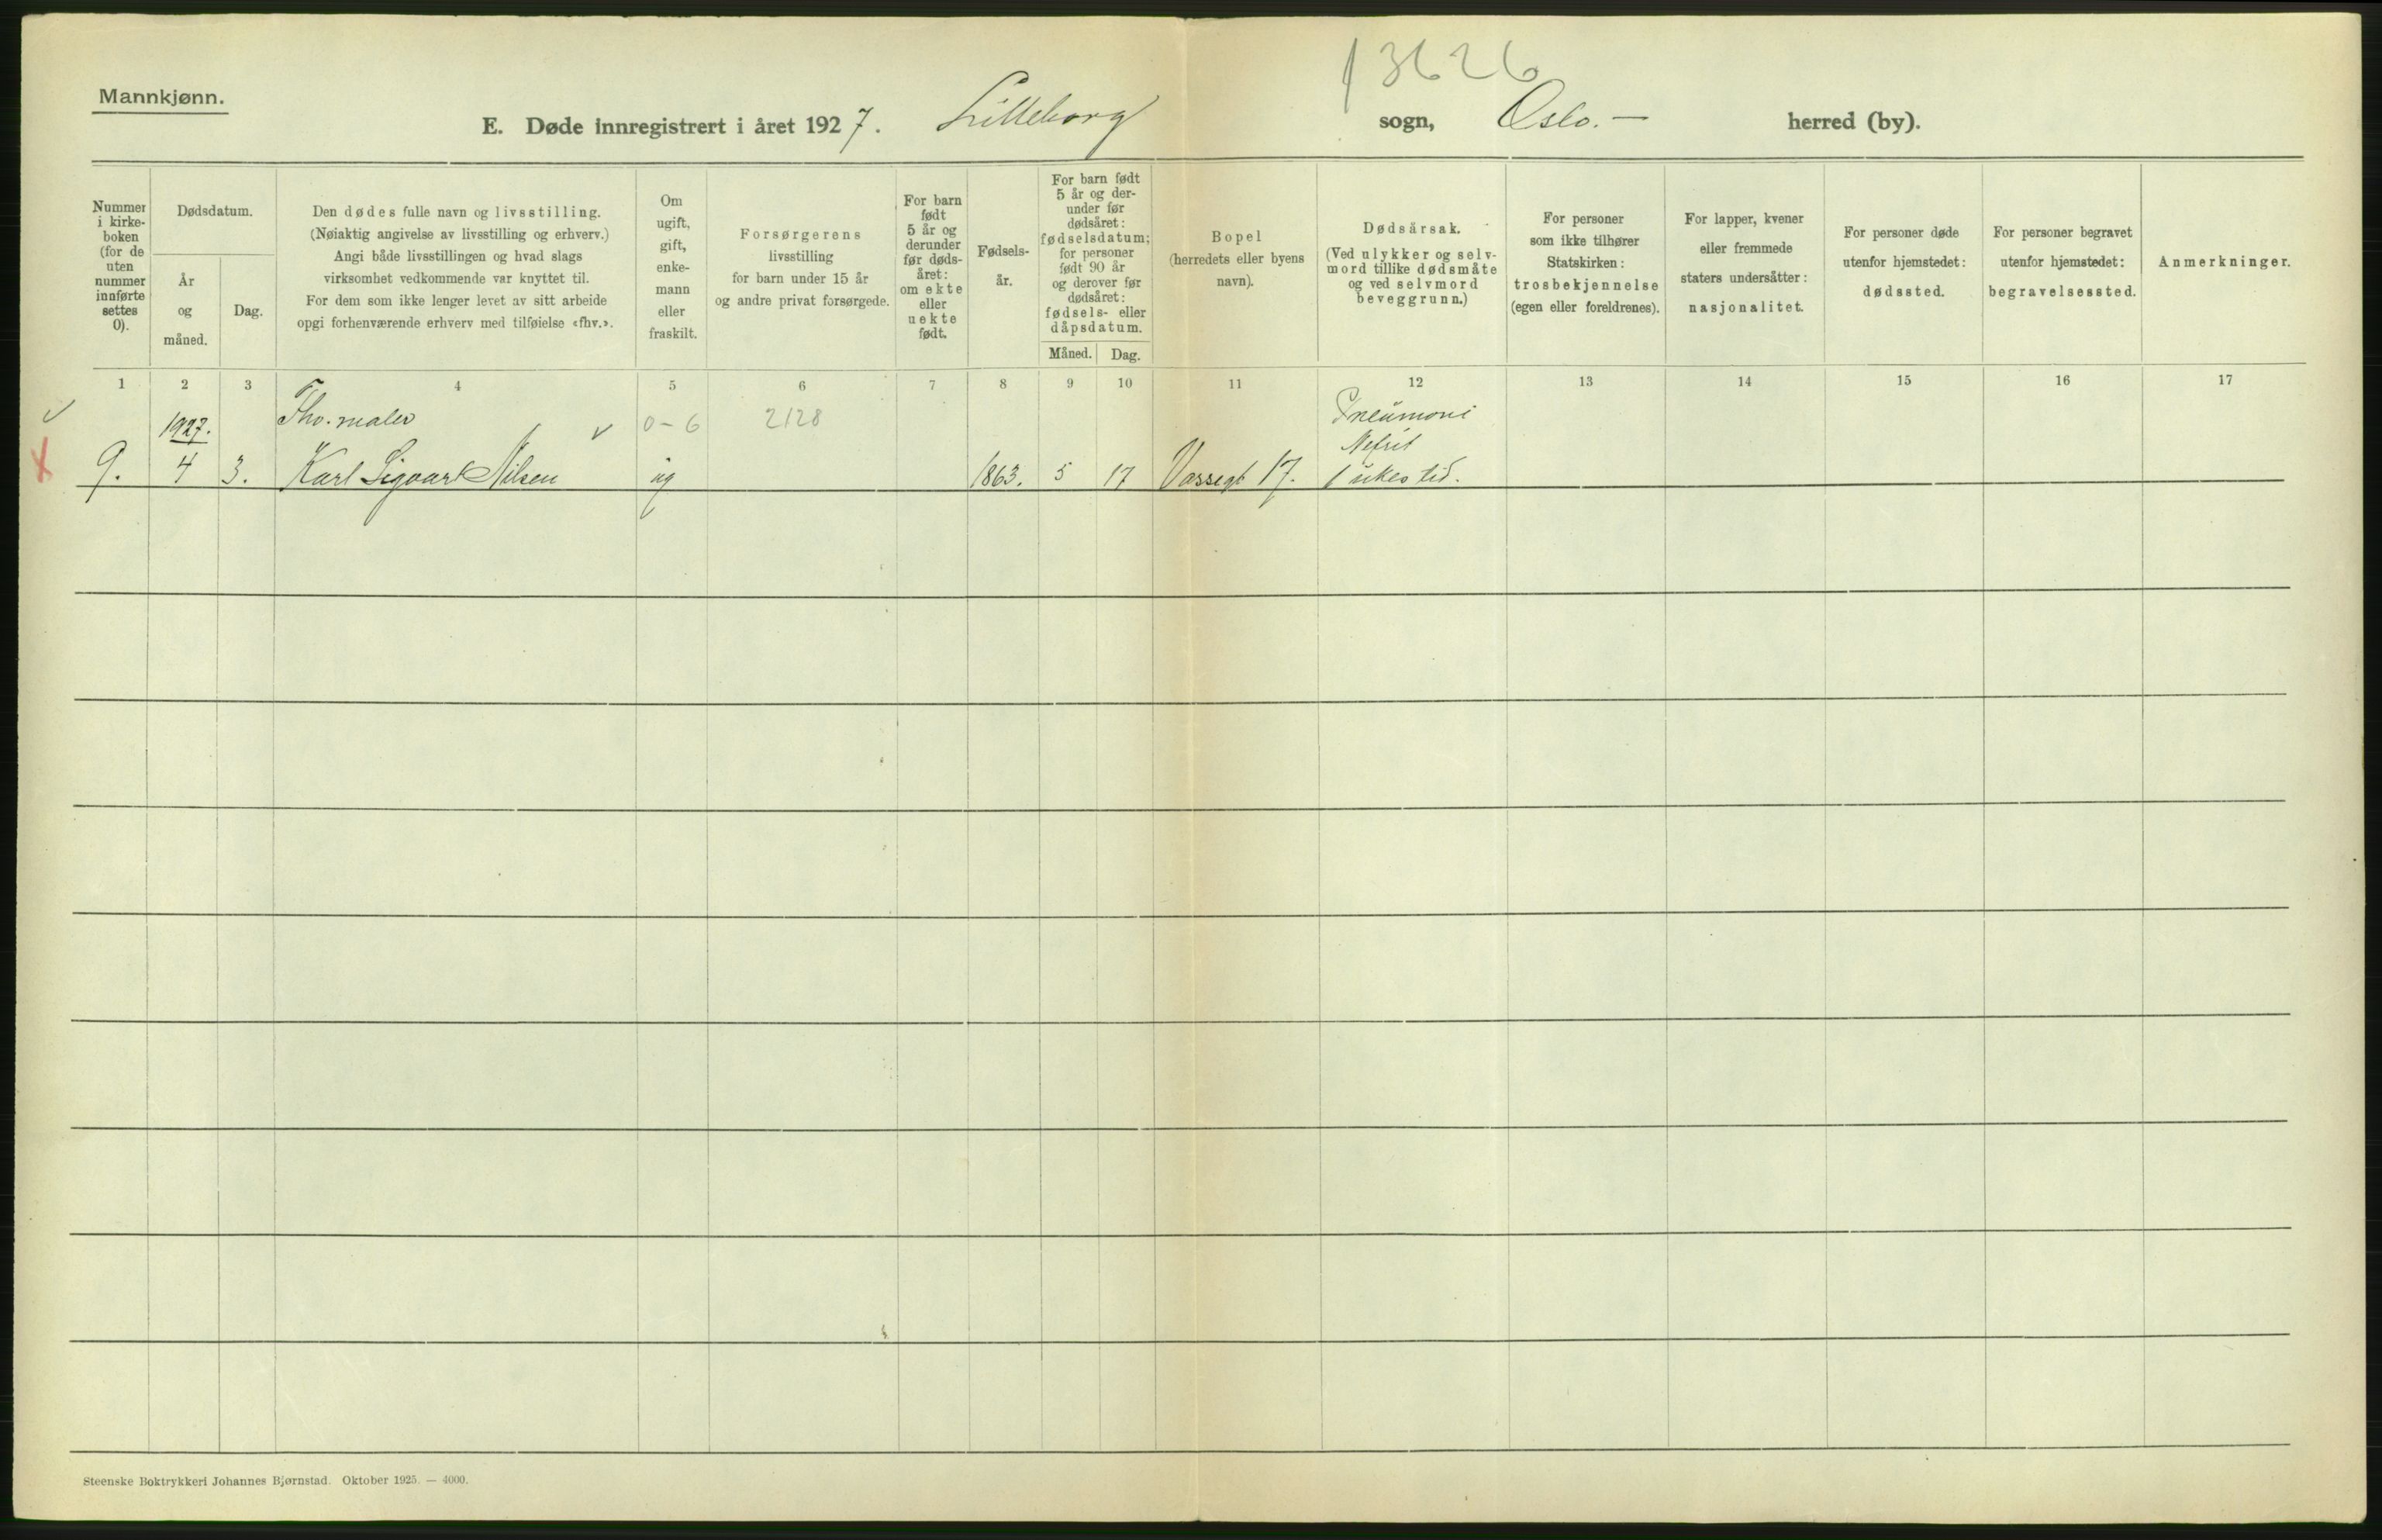 13626
Mannkjønn.
E. Døde innregistrert i året 1927. Lilleborg sogn, Oslo. — herred (by).
Nummer i kirke-boken (for de uten nummer innførte settes 0).
Dødsdatum.
År og måned.
Dag.
Den dødes fulle navn og livsstilling.
(Nøiaktig angivelse av livsstilling og erhverv.)
Angi både livsstillingen og hvad slags
virksomhet vedkommende var knyttet til.
For dem som ikke lenger levet av sitt arbeide
opgi forhenværende erhverv med tilføielse «fhv.».
Om ugift, gift, enke-mann eller fraskilt.
Forsørgerens
livsstilling
for barn under 15 år
og andre privat forsørgede.
For barn født 5 år og derunder før døds-året: om ekte eller uekte født.
Fødsels-år.
For barn født 5 år og der-under før dødsåret: fødselsdatum; for personer født 90 år og derover før dødsåret: fødsels- eller dåpsdatum.
Måned. Dag.
Bopel
(herredets eller byens
navn).
Dødsårsak.
(Ved ulykker og selv-
mord tillike dødsmåte
og ved selvmord
beveggrunn.)
For personer
som ikke tilhører
Statskirken:
trosbekjennelse
(egen eller foreldrenes).
For lapper, kvener
eller fremmede
staters undersåtter:
nasjonalitet.
For personer døde
utenfor hjemstedet:
dødssted.
For personer begravet
utenfor hjemstedet:
begravelsessted.
Anmerkninger.
1 2 3 4 5 6 7 8 9 10 11 12 13 14 15 16 17
1927. Fhv. maler 0-6 2128 Pneumoni
Nefrit
9. 4 3. Karl Sigvart Nilsen ug 1863. 5 17 Vossegt 17. 1 ukes tid.
Steenske Boktrykkeri Johannes Bjørnstad. Oktober 1925. — 4000.